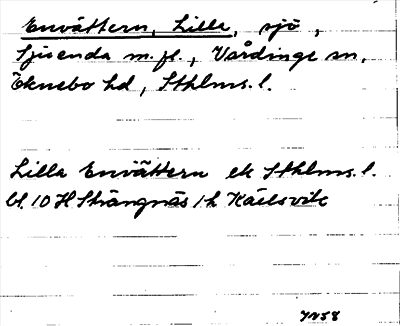 Envättern, Lilla, sjö,
m.fl., Vårdinge sn,
Öknebo hd, Sthlms. l.
Lilla Envättern ek Sthlms. l.
bl. 10 H Strängnäs 1 h Käelsvik